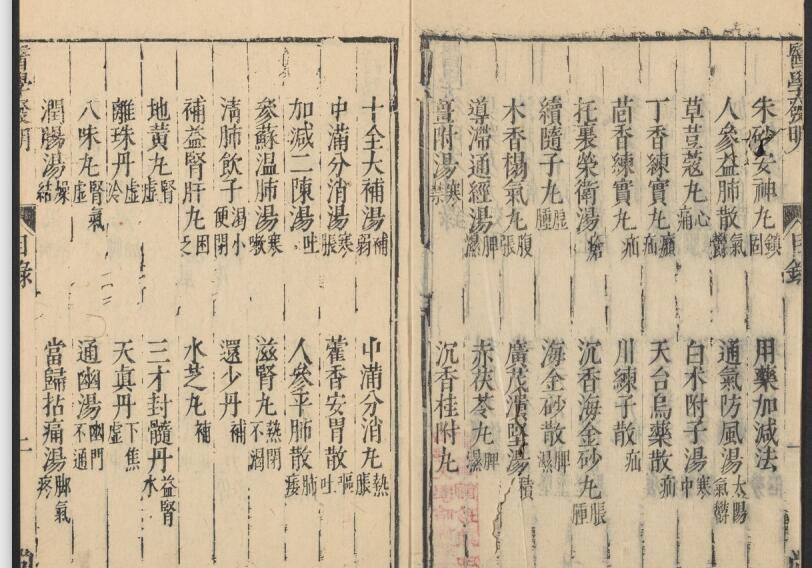 醫學發明 目錄 一
朱砂安神丸鎮固 用藥加減法
人參益肺散氣鬱 通氣防風湯太陽氣鬱
草荳蔻丸心痛 白朮附子湯寒中
丁香練實丸㿗疝 天台烏藥散疝
茴香練實丸疝 川練子散疝
托裏榮衛湯瘡 沉香海金砂丸脹腫
續隨子丸虛腫 海金砂散脾濕
木香梹氣丸腹張 廣茂潰堅湯積
導滯通經湯脾濕 赤茯苓丸脾濕
薑附湯寒禁 沉香桂附丸
十全大補湯補弱 中滿分消丸熱脹
中滿分消湯寒脹 藿香安胃散嘔吐
加減二陳湯吐 人參平肺散肺痿
參蘇溫肺湯寒嗽 滋腎丸熱閉不渴
清肺飲子渴小便閉 還少丹補
補益腎肝丸困乏 水芝丸補
地黃丸腎虛 三才封髓丹益腎水
離珠丹虛冷 天真丹下焦虛
八味丸腎氣虛 通幽湯幽門不通
潤腸湯燥結 當歸拈痛湯脚氣疼
醫學發明 目錄 二